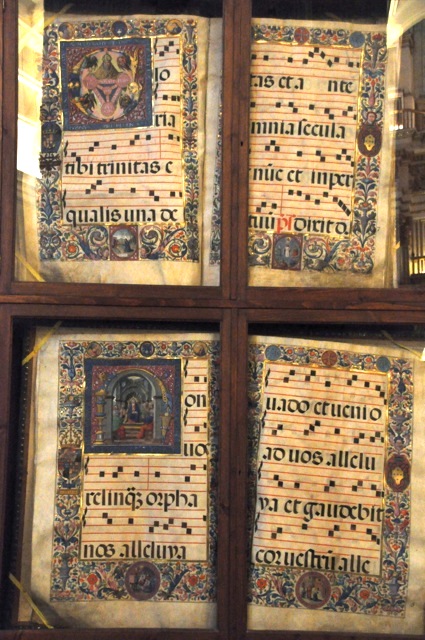 lo
ria
tibi trinitas e
qualis una de
tas et a nte
mnia secula
nūc et inper
tuū ps dixit d.
on
uos
relinq̃z orpha
nos alleluya
uado et uenio
ad uos allelu
ya et gaudebit
cor uestrū alle